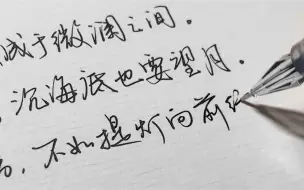 成于微澜之间。
沉海底也要望月。
不如提灯向前